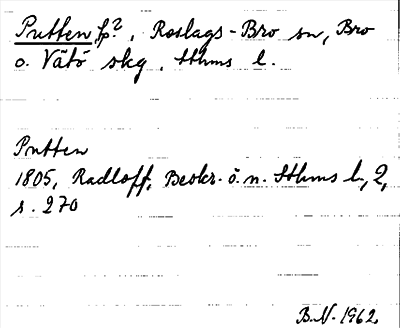 Putten, tp?, Roslags-Bro sn, Bro
o. Vätö skg, Sthms l.
Putten
1805, Radloff, Beskr. ö. n. Sthms l, 2,
s. 270
B.N. 1962